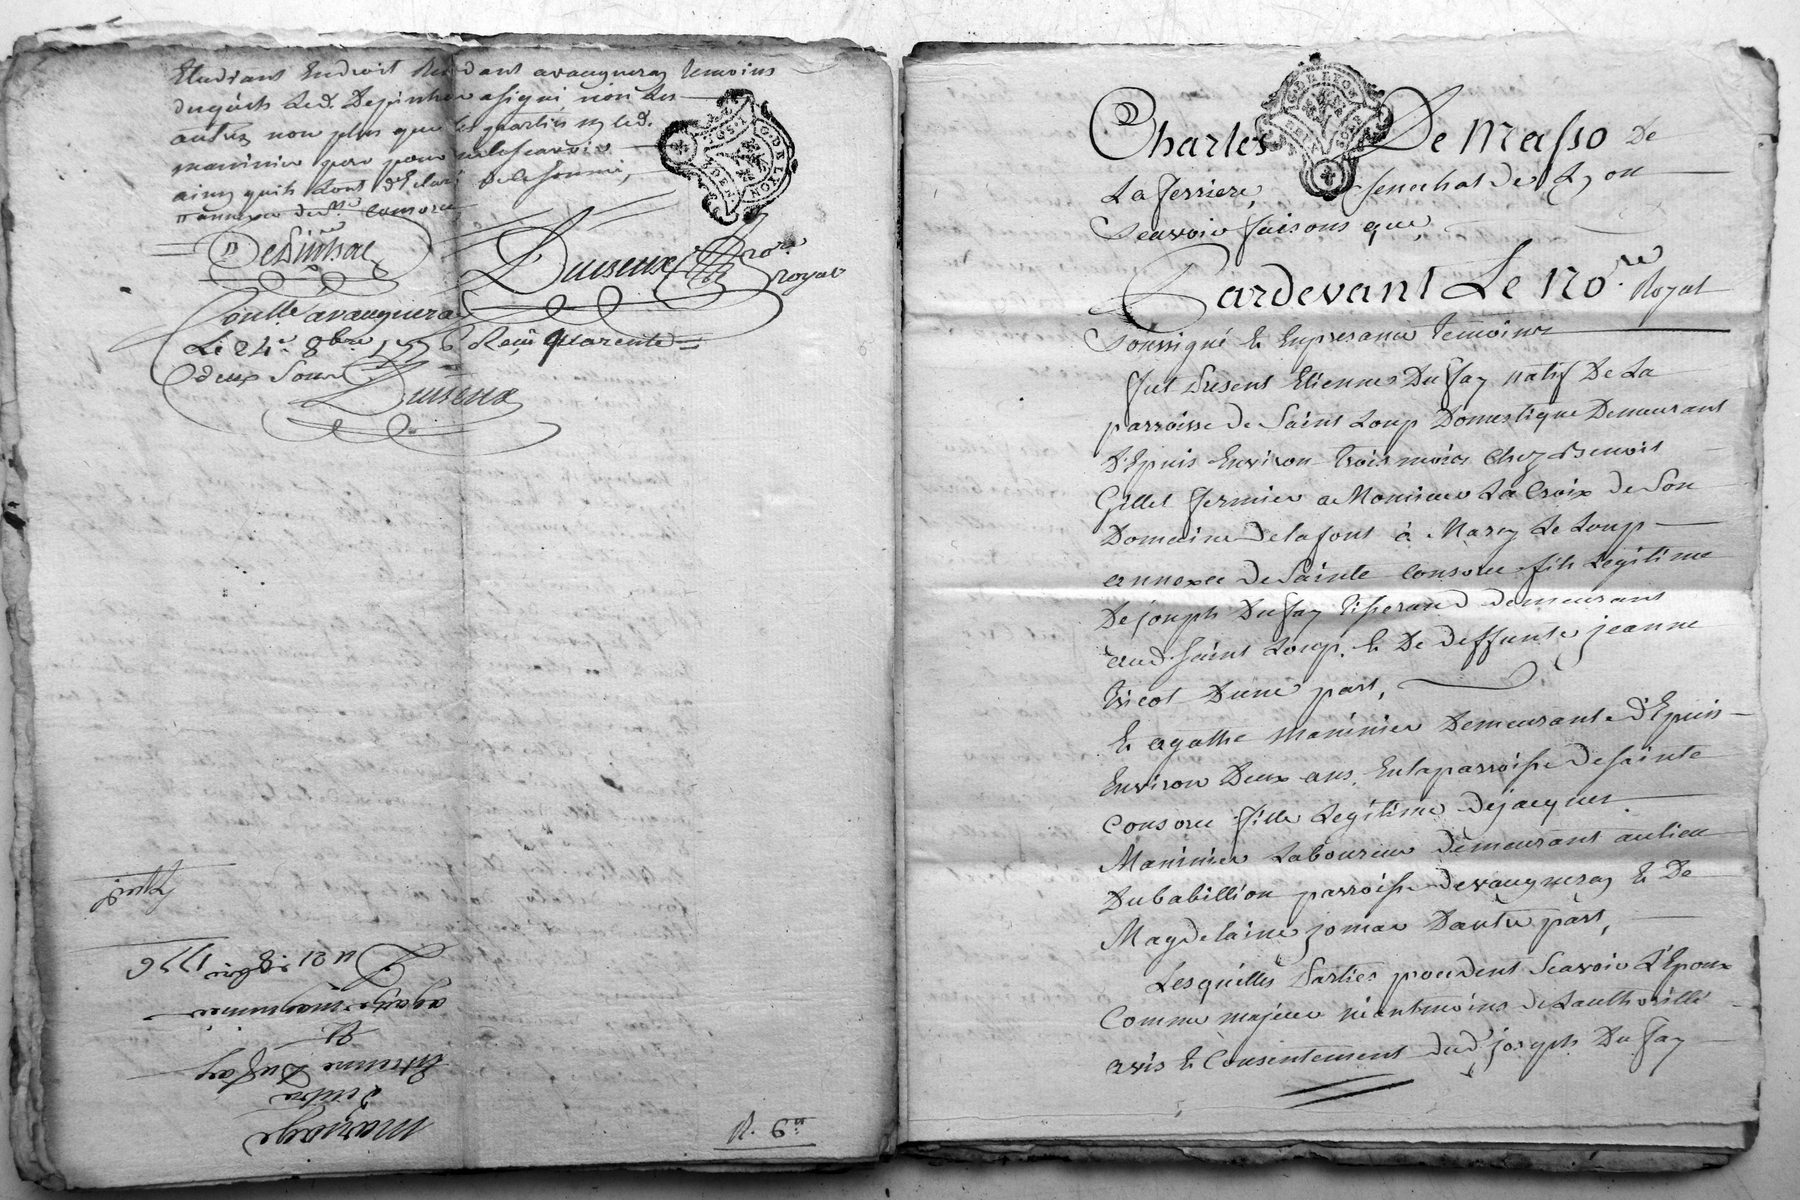 Etudiant Endroit Residant avaugneray temoins
duquels Led. Desinhac a signé, non Les
autres non plus que les parties ny led.
maninier pere pour ne le scavoir
ainsy quils Lont déclaré de ce sommé,
annexe de Ste Consorce
DeSinhac
Duiseux nore royal
Conllé avaugneray
Le 24e 8bre 1776 Reçu quarente
deux sous
Duiseux
Mariage
Entre
Estienne Dufay
Et
agathe maguinnier
Du 21 8bre 1776
Expié
R. 6
Charles De Masso De
La ferriere, Senechal de Lyon
Scavoir faisons que,
Pardevant Le No.re Royal
Soussigné Et Enpresance temoins
fut Présent Etienne Dufay natif De La
parroisse de Saint Loup Domestique Demeurant
D'Epuis Environ trois mois Chez Benoit
Gillet fermier a Monsieur La Croix de Son
Domaine Delafont à Marcy Le Loup
annexe De Sainte Consorce fils Legitime
De joseph Dufay tisserand demeurant
aud. Saint Loup, Et De deffunte jeanne
tricot D'une part,
Et agathe Maninier Demeurante d'Epuis
Environ Deux ans, En la parroisse De Sainte
Consorce fille Legitime de jacques
Maninier Laboureur demeurant au lieu
Dubabillion parroisse de vaugneray Et De
Magdelaine jomar Dautre part,
Lesquelles Parties procedent Scavoir L'Epoux
Comme majeur néantmoins de Lauthorité
avis Et Consentement dud. joseph Dufay